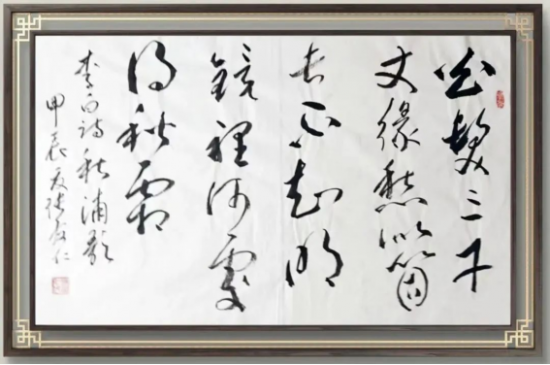 白髮三千
丈緣愁似箇
長不知明
鏡裡何處
得秋霜
李白詩秋浦歌
甲辰夏仁